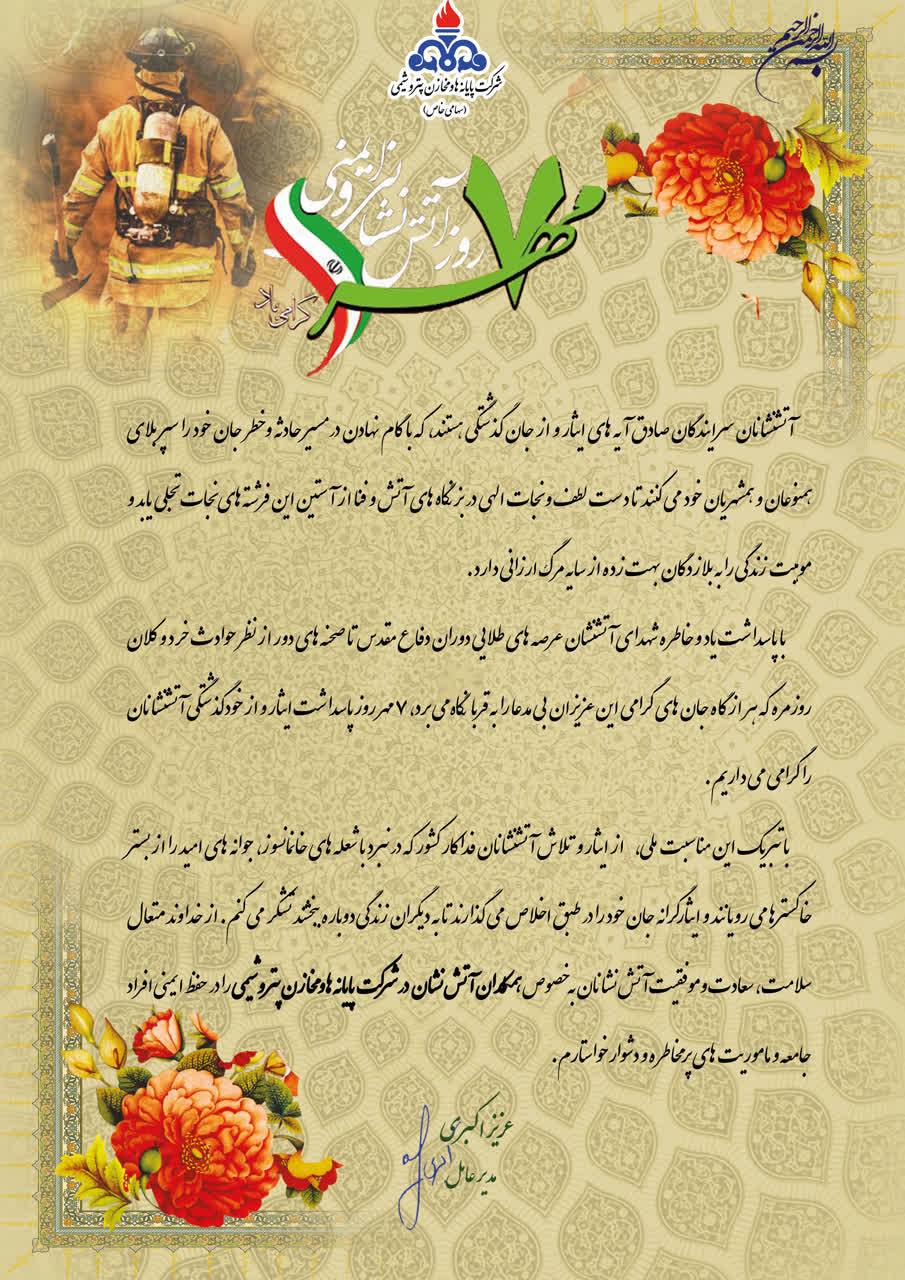 بسم الله الرحمن الرحیم
شرکت پایانه ها و مخازن پتروشیمی
(سهامی خاص)
۷ مهر
روز آتش نشانی و ایمنی
گرامی باد
آتشنشانان سرایندگان صادق آیه های ایثار و از جان گذشتگی هستند، که با گام نهادن در مسیر حادثه و خطر جان خود را سپر بلای
همنوعان و همشهریان خود می کنند تا دست لطف و نجات الهی در بزنگاه های آتش و فنا از آستین این فرشته های نجات تجلی یابد و
موهبت زندگی را به بلازدگان بهت زده از سایه مرگ ارزانی دارد.
با پاسداشت یاد و خاطره شهدای آتشنشان عرصه های طلایی دوران دفاع مقدس تا صحنه های دور از نظر حوادث خرد و کلان
روزمره که هر از گاه جان های گرامی این عزیزان بی مدعا را به قربانگاه می برد، ۷ مهر روز پاسداشت ایثار و از خودگذشتگی آتشنشانان
را گرامی می داریم.
با تبریک این مناسبت ملی، از ایثار و تلاش آتشنشانان فداکار کشور که در نبرد با شعله های خانمانسوز، جوانه های امید را از بستر
خاکسترها می رویانند و ایثارگرانه جان خود را در طبق اخلاص می گذارند تا به دیگران زندگی دوباره ببخشند تشکر می کنم. از خداوند متعال
سلامت، سعادت و موفقیت آتش نشانان به خصوص همکاران آتش نشان در شرکت پایانه ها و مخازن پتروشیمی را در حفظ ایمنی افراد
جامعه و ماموریت های پرمخاطره و دشوار خواستارم.
عزیز اکبری
مدیر عامل